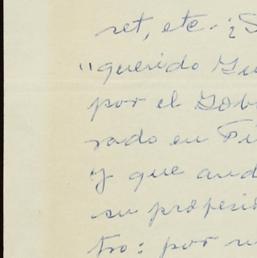 set, etc. ¿S
"querido Gu
por el Gob
rado en Fi
y que and
su propósi
tro: por